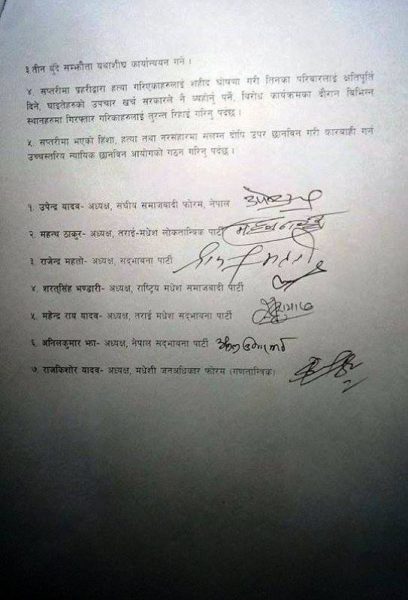 ३.तीन बुँदे सम्झौता यथाशीघ्र कार्यान्वयन गर्ने ।
४. सप्तरीमा प्रहरीद्वारा हत्या गरिएकाहरुलाई शहीद घोषणा गरी तिनका परिवारलाई क्षतिपूर्ति
दिने, घाइतेहरुको उपचार खर्च सरकारले नै व्यहोर्नु पर्ने, विरोध कार्यक्रमका दौरान विभिन्न
स्थानहरुमा गिरफ्तार गरिकाहरुलाई तुरन्त रिहाई गरिनु पर्दछ ।
५. सप्तरीमा भएको हिंशा, हत्या तथा नरसंहारमा संलग्न दोषि उपर छानविन गरी कारवाही गर्न
उच्चस्तरिय न्यायिक छानविन आयोगको गठन गरिनु पर्दछ ।
१. उपेन्द्र यादव- अध्यक्ष, संघीय समाजवादी फोरम, नेपाल
२. महन्थ ठाकुर- अध्यक्ष, तराई-मधेश लोकतान्त्रिक पार्टी
३ राजेन्द्र महतो- अध्यक्ष, सद्भावना पार्टी
४. शरतसिंह भण्डारी- अध्यक्ष, राष्ट्रिय मधेश समाजवादी पार्टी
५. महेन्द्र राय यादव- अध्यक्ष, तराई मधेश सद्भावना पार्टी
६. अनिलकुमार झा- अध्यक्ष, नेपाल सद्भावना पार्टी
७. राजकिशोर यादव- अध्यक्ष, मधेशी जनअधिकार फोरम (गणतान्त्रिक)